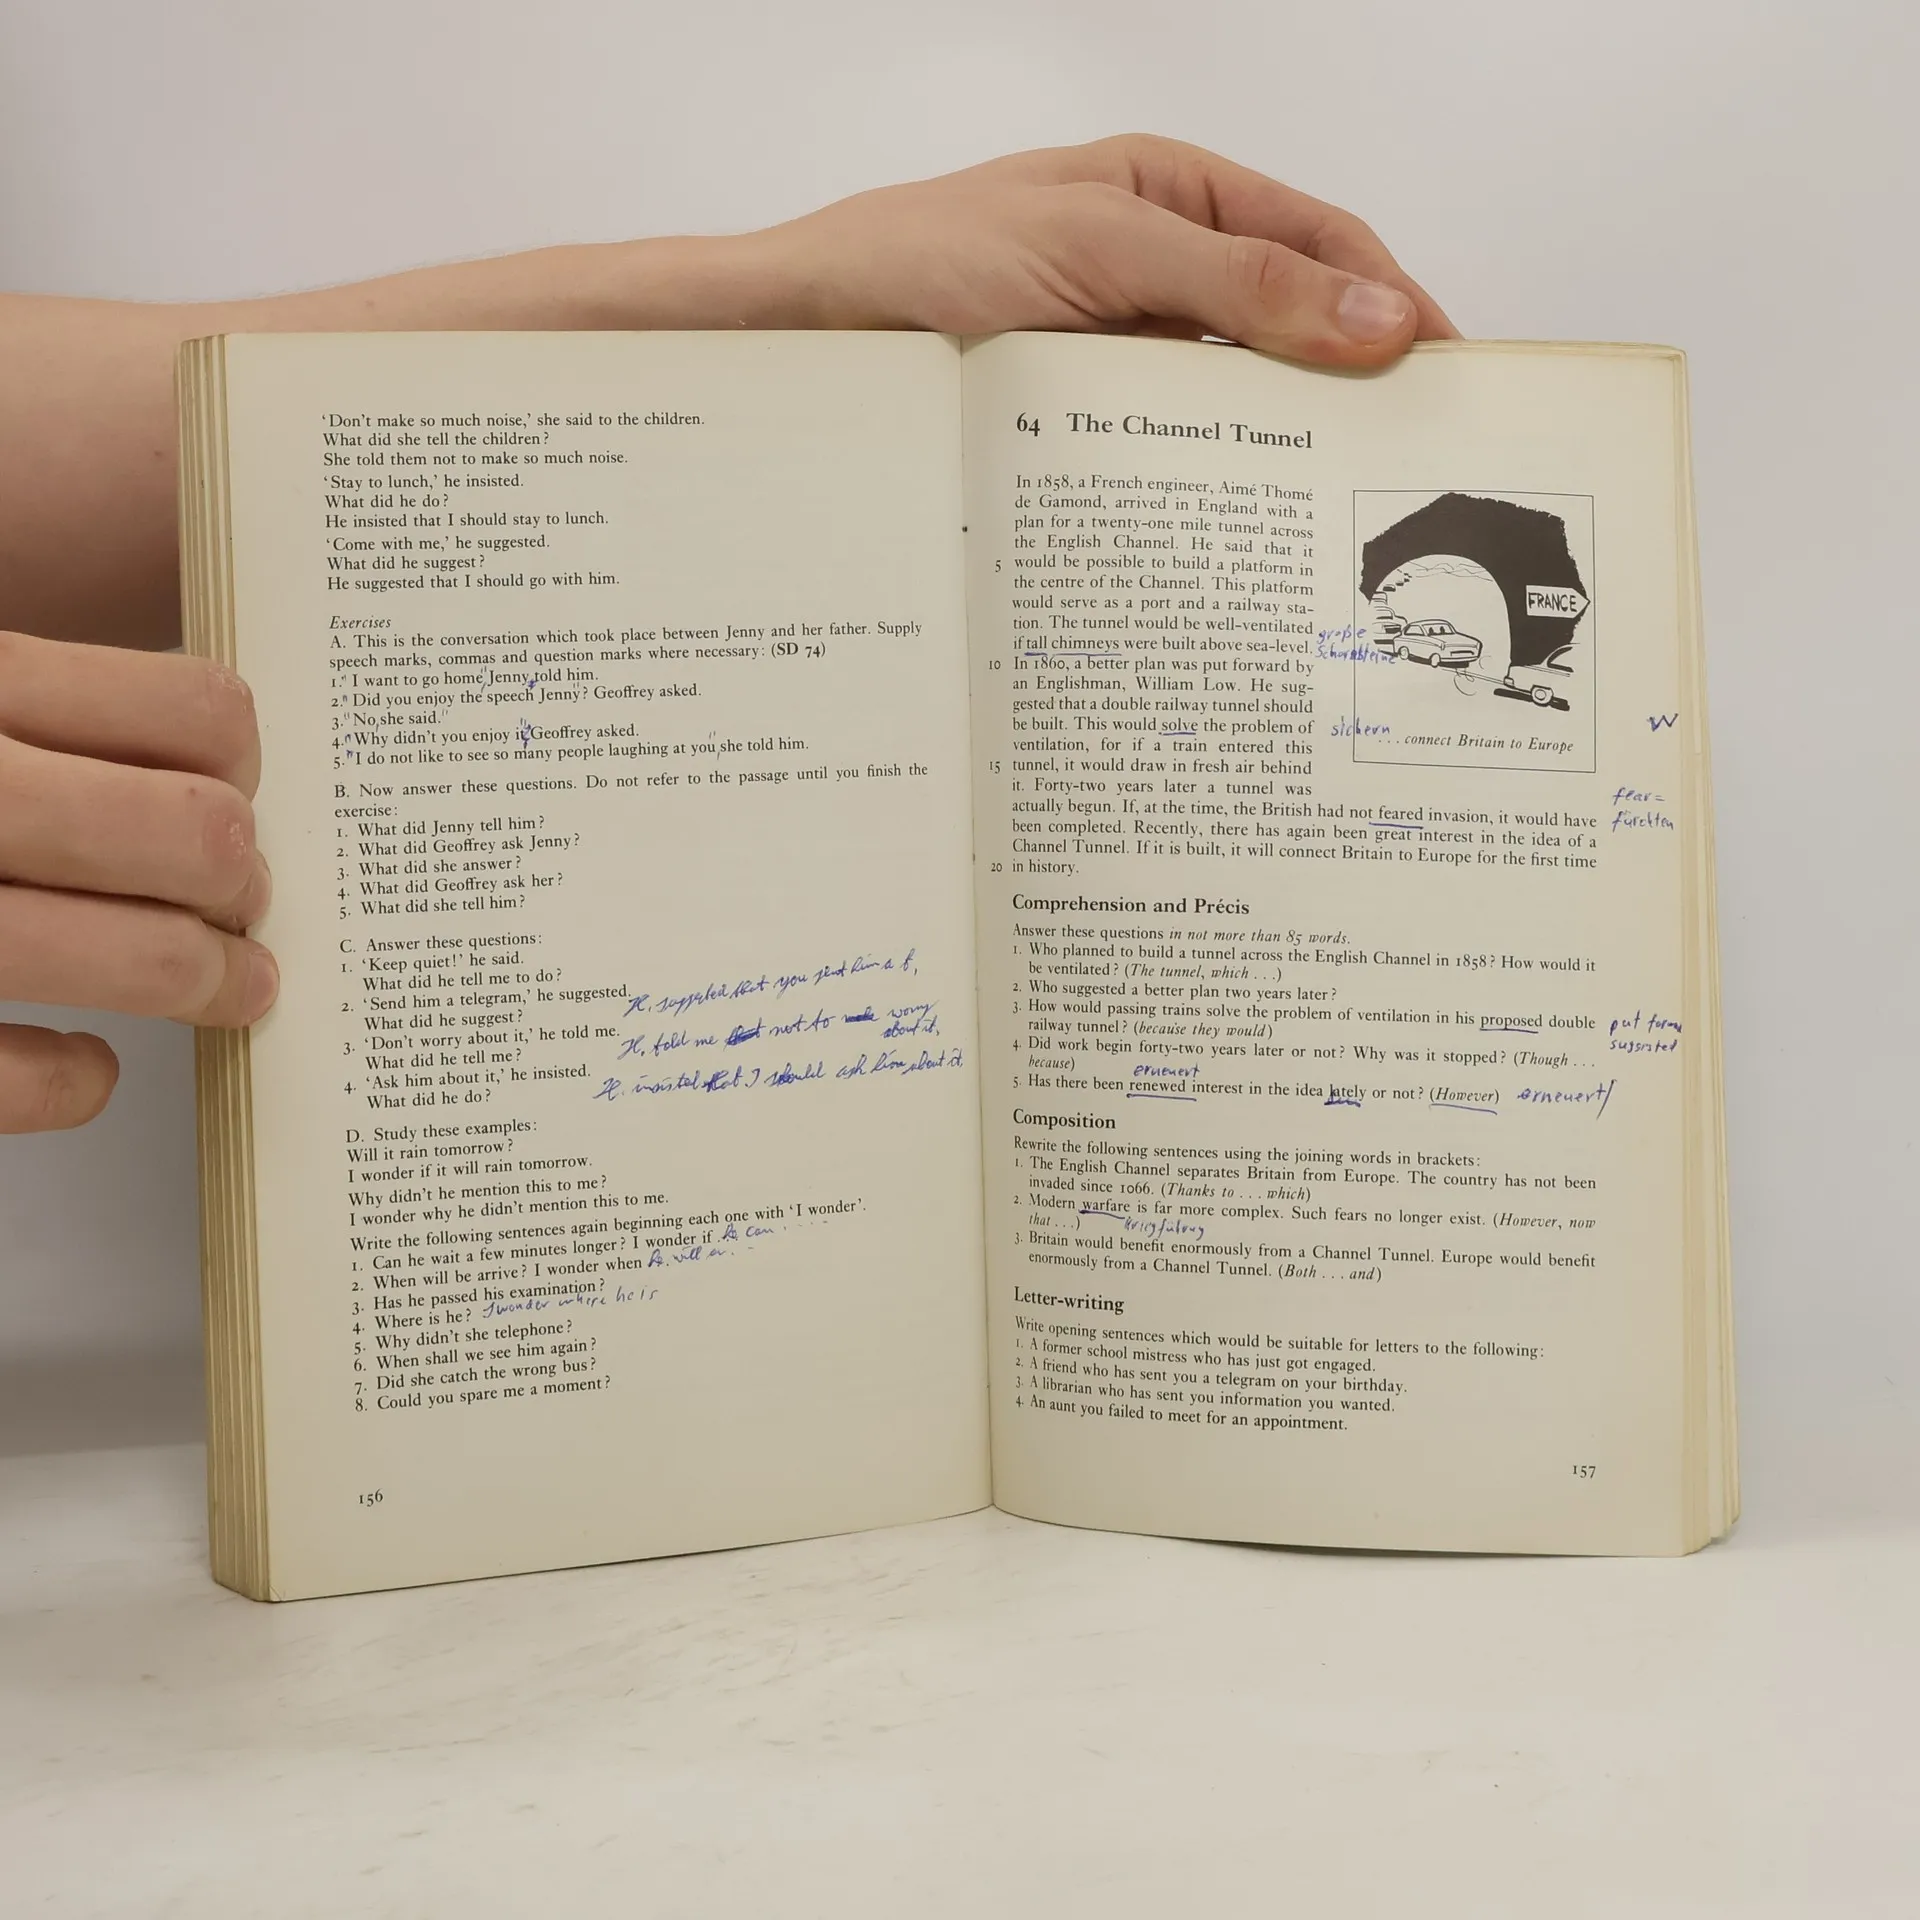 'Don't make so much noise,' she said to the children.
What did she tell the children?
She told them not to make so much noise.
'Stay to lunch,' he insisted.
What did he do?
He insisted that I should stay to lunch.
'Come with me,' he suggested.
What did he suggest?
He suggested that I should go with him.
Exercises
A. This is the conversation which took place between Jenny and her father. Supply
speech marks, commas and question marks where necessary: (SD 74)
1." I want to go home," Jenny told him.
2." Did you enjoy the speech Jenny"? Geoffrey asked.
3." No, she said."
4." Why didn't you enjoy it" Geoffrey asked.
5." I do not like to see so many people laughing at you", she told him.
B. Now answer these questions. Do not refer to the passage until you finish the
exercise:
1. What did Jenny tell him?
2. What did Geoffrey ask Jenny?
3. What did she answer?
4. What did Geoffrey ask her?
5. What did she tell him?
C. Answer these questions:
1. 'Keep quiet!' he said.
What did he tell me to do?
2. 'Send him a telegram,' he suggested.
What did he suggest? He suggested that you sent him a t,
3. 'Don't worry about it,' he told me.
What did he tell me? He told me not to worry
about it,
4. 'Ask him about it,' he insisted.
What did he do? He insisted that I should ask him about it,
D. Study these examples:
Will it rain tomorrow?
I wonder if it will rain tomorrow.
Why didn't he mention this to me?
I wonder why he didn't mention this to me.
Write the following sentences again beginning each one with 'I wonder'.
1. Can he wait a few minutes longer? I wonder if he can ....
2. When will be arrive? I wonder when he will
3. Has he passed his examination?
4. Where is he? I wonder where he is
5. Why didn't she telephone?
6. When shall we see him again?
7. Did she catch the wrong bus?
8. Could you spare me a moment?
156
64 The Channel Tunnel
In 1858, a French engineer, Aimé Thomé
de Gamond, arrived in England with a
plan for a twenty-one mile tunnel across
the English Channel. He said that it
5 would be possible to build a platform in
the centre of the Channel. This platform
would serve as a port and a railway sta-
tion. The tunnel would be well-ventilated
if tall chimneys were built above sea-level.
große
Schornsteine
10 In 1860, a better plan was put forward by
an Englishman, William Low. He sug-
gested that a double railway tunnel should
be built. This would solve the problem of
sichern
ventilation, for if a train entered this
15 tunnel, it would draw in fresh air behind
it. Forty-two years later a tunnel was
FRANCE
... connect Britain to Europe
W
actually begun. If, at the time, the British had not feared invasion, it would have
fear=
fürchten
been completed. Recently, there has again been great interest in the idea of a
Channel Tunnel. If it is built, it will connect Britain to Europe for the first time
20 in history.
Comprehension and Précis
Answer these questions in not more than 85 words.
1. Who planned to build a tunnel across the English Channel in 1858? How would it
be ventilated? (The tunnel, which ...)
2. Who suggested a better plan two years later?
3. How would passing trains solve the problem of ventilation in his proposed double
put forw
railway tunnel? (because they would)
4. Did work begin forty-two years later or not? Why was it stopped? (Though ...
because)
erneuert
5. Has there been renewed interest in the idea lately or not? (However) erneuert/
Composition
Rewrite the following sentences using the joining words in brackets:
1. The English Channel separates Britain from Europe. The country has not been
invaded since 1066. (Thanks to ... which)
2. Modern warfare is far more complex. Such fears no longer exist. (However, now
that ...) Kriegführung
3. Britain would benefit enormously from a Channel Tunnel. Europe would benefit
enormously from a Channel Tunnel. (Both ... and)
Letter-writing
Write opening sentences which would be suitable for letters to the following:
1. A former school mistress who has just got engaged.
2. A friend who has sent you a telegram on your birthday.
3. A librarian who has sent you information you wanted.
4. An aunt you failed to meet for an appointment.
157